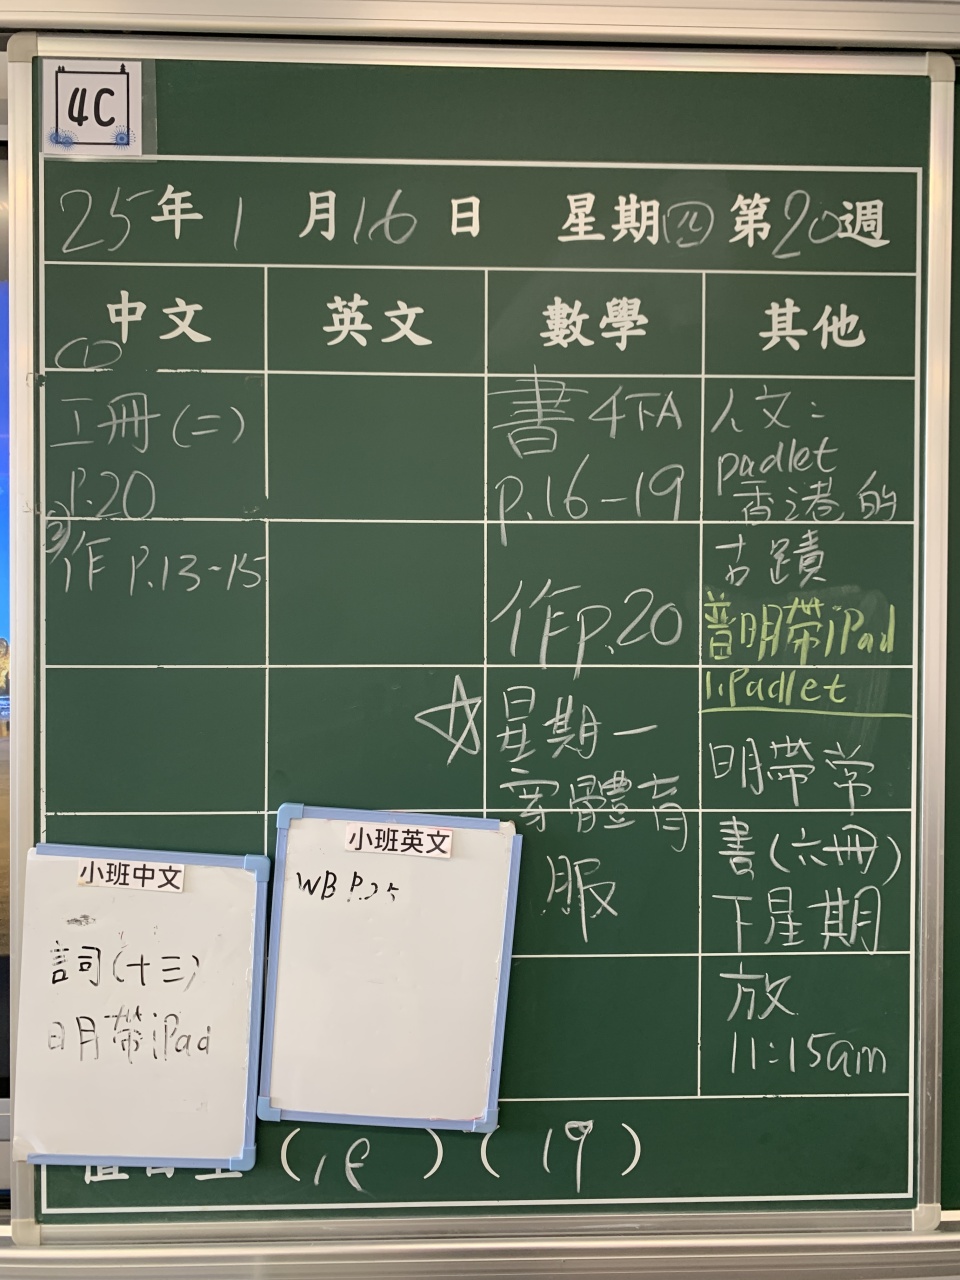 4C
25年1月16日 星期四 第20週
中文
英文
數學
其他
(1)
工冊(二)
P.20
作 P.13-15
書4下A
P.16-19
作P.20
☆星期一
穿體育
服
人文:
padlet
香港的
古蹟
普明帶iPad
1.Padlet
明帶常
書(六冊)
下星期
放
11:15am
小班中文
詞(十三)
明帶iPad
小班英文
WB P.25
(18) (19)